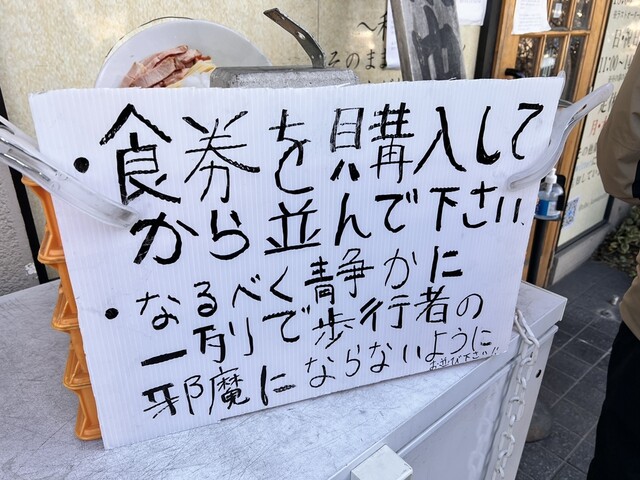 ・食券を購入して
から並んで下さい、
・なるべく静かに
一列で歩行者の
邪魔にならないように
お並び下さい!!
そのまま